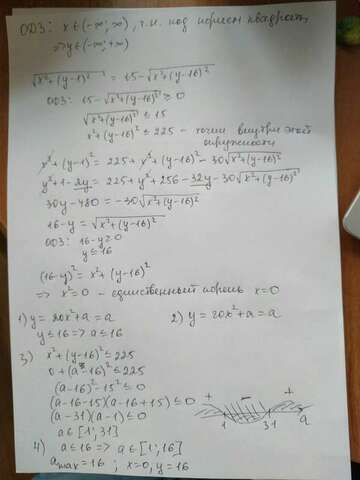 ОДЗ: x∈(-∞;∞), т.к. под корнем квадраты,
⇒ y∈(-∞;+∞)
√(x²+(y-1)²) = 15-√(x²+(y-16)²)
ОДЗ: 15-√(x²+(y-16)²) ≥ 0
√(x²+(y-16)²) ≤ 15
x²+(y-16)² ≤ 225 - точки внутри этой
окружности
x²+(y-1)² = 225+x²+(y-16)²-30√(x²+(y-16)²)
y²+1-2y = 225+y²+256-32y-30√(x²+(y-16)²)
30y-480 = -30√(x²+(y-16)²)
16-y = √(x²+(y-16)²)
ОДЗ: 16-y≥0
y≤16
(16-y)² = x²+(y-16)²
⇒ x²=0 - единственный корень x=0
1) y = 20x²+a = a
2) y = 20x²+a = a
y≤16 ⇒ a≤16
3) x²+(y-16)² ≤ 225
0+(a-16)² ≤ 225
(a-16)²-15² ≤ 0
(a-16-15)(a-16+15) ≤ 0
(a-31)(a-1) ≤ 0
+ - +
1 31 a
a∈[1; 31]
4) a≤16 ⇒ a∈[1; 16]
a max = 16 ; x=0, y=16